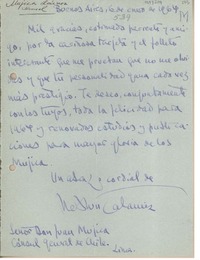 Mujica Láinez
Manuel
Buenos Aires, enero de 1964
539
Mil gracias, estimado pariente y ami-
go, por tu tarjeta y el folleto
interesante que me prueban que no me olvi-
das y que tu personalidad gana cada vez
más prestigio. Te deseo, conjuntamente
con los tuyos, toda la felicidad para
1964 y renovados estudios y publica-
ciones para mayor gloria de los
Mujica.
Un abrazo cordial de
Señor Don Juan Mujica
Cónsul General de Chile.
Lima.